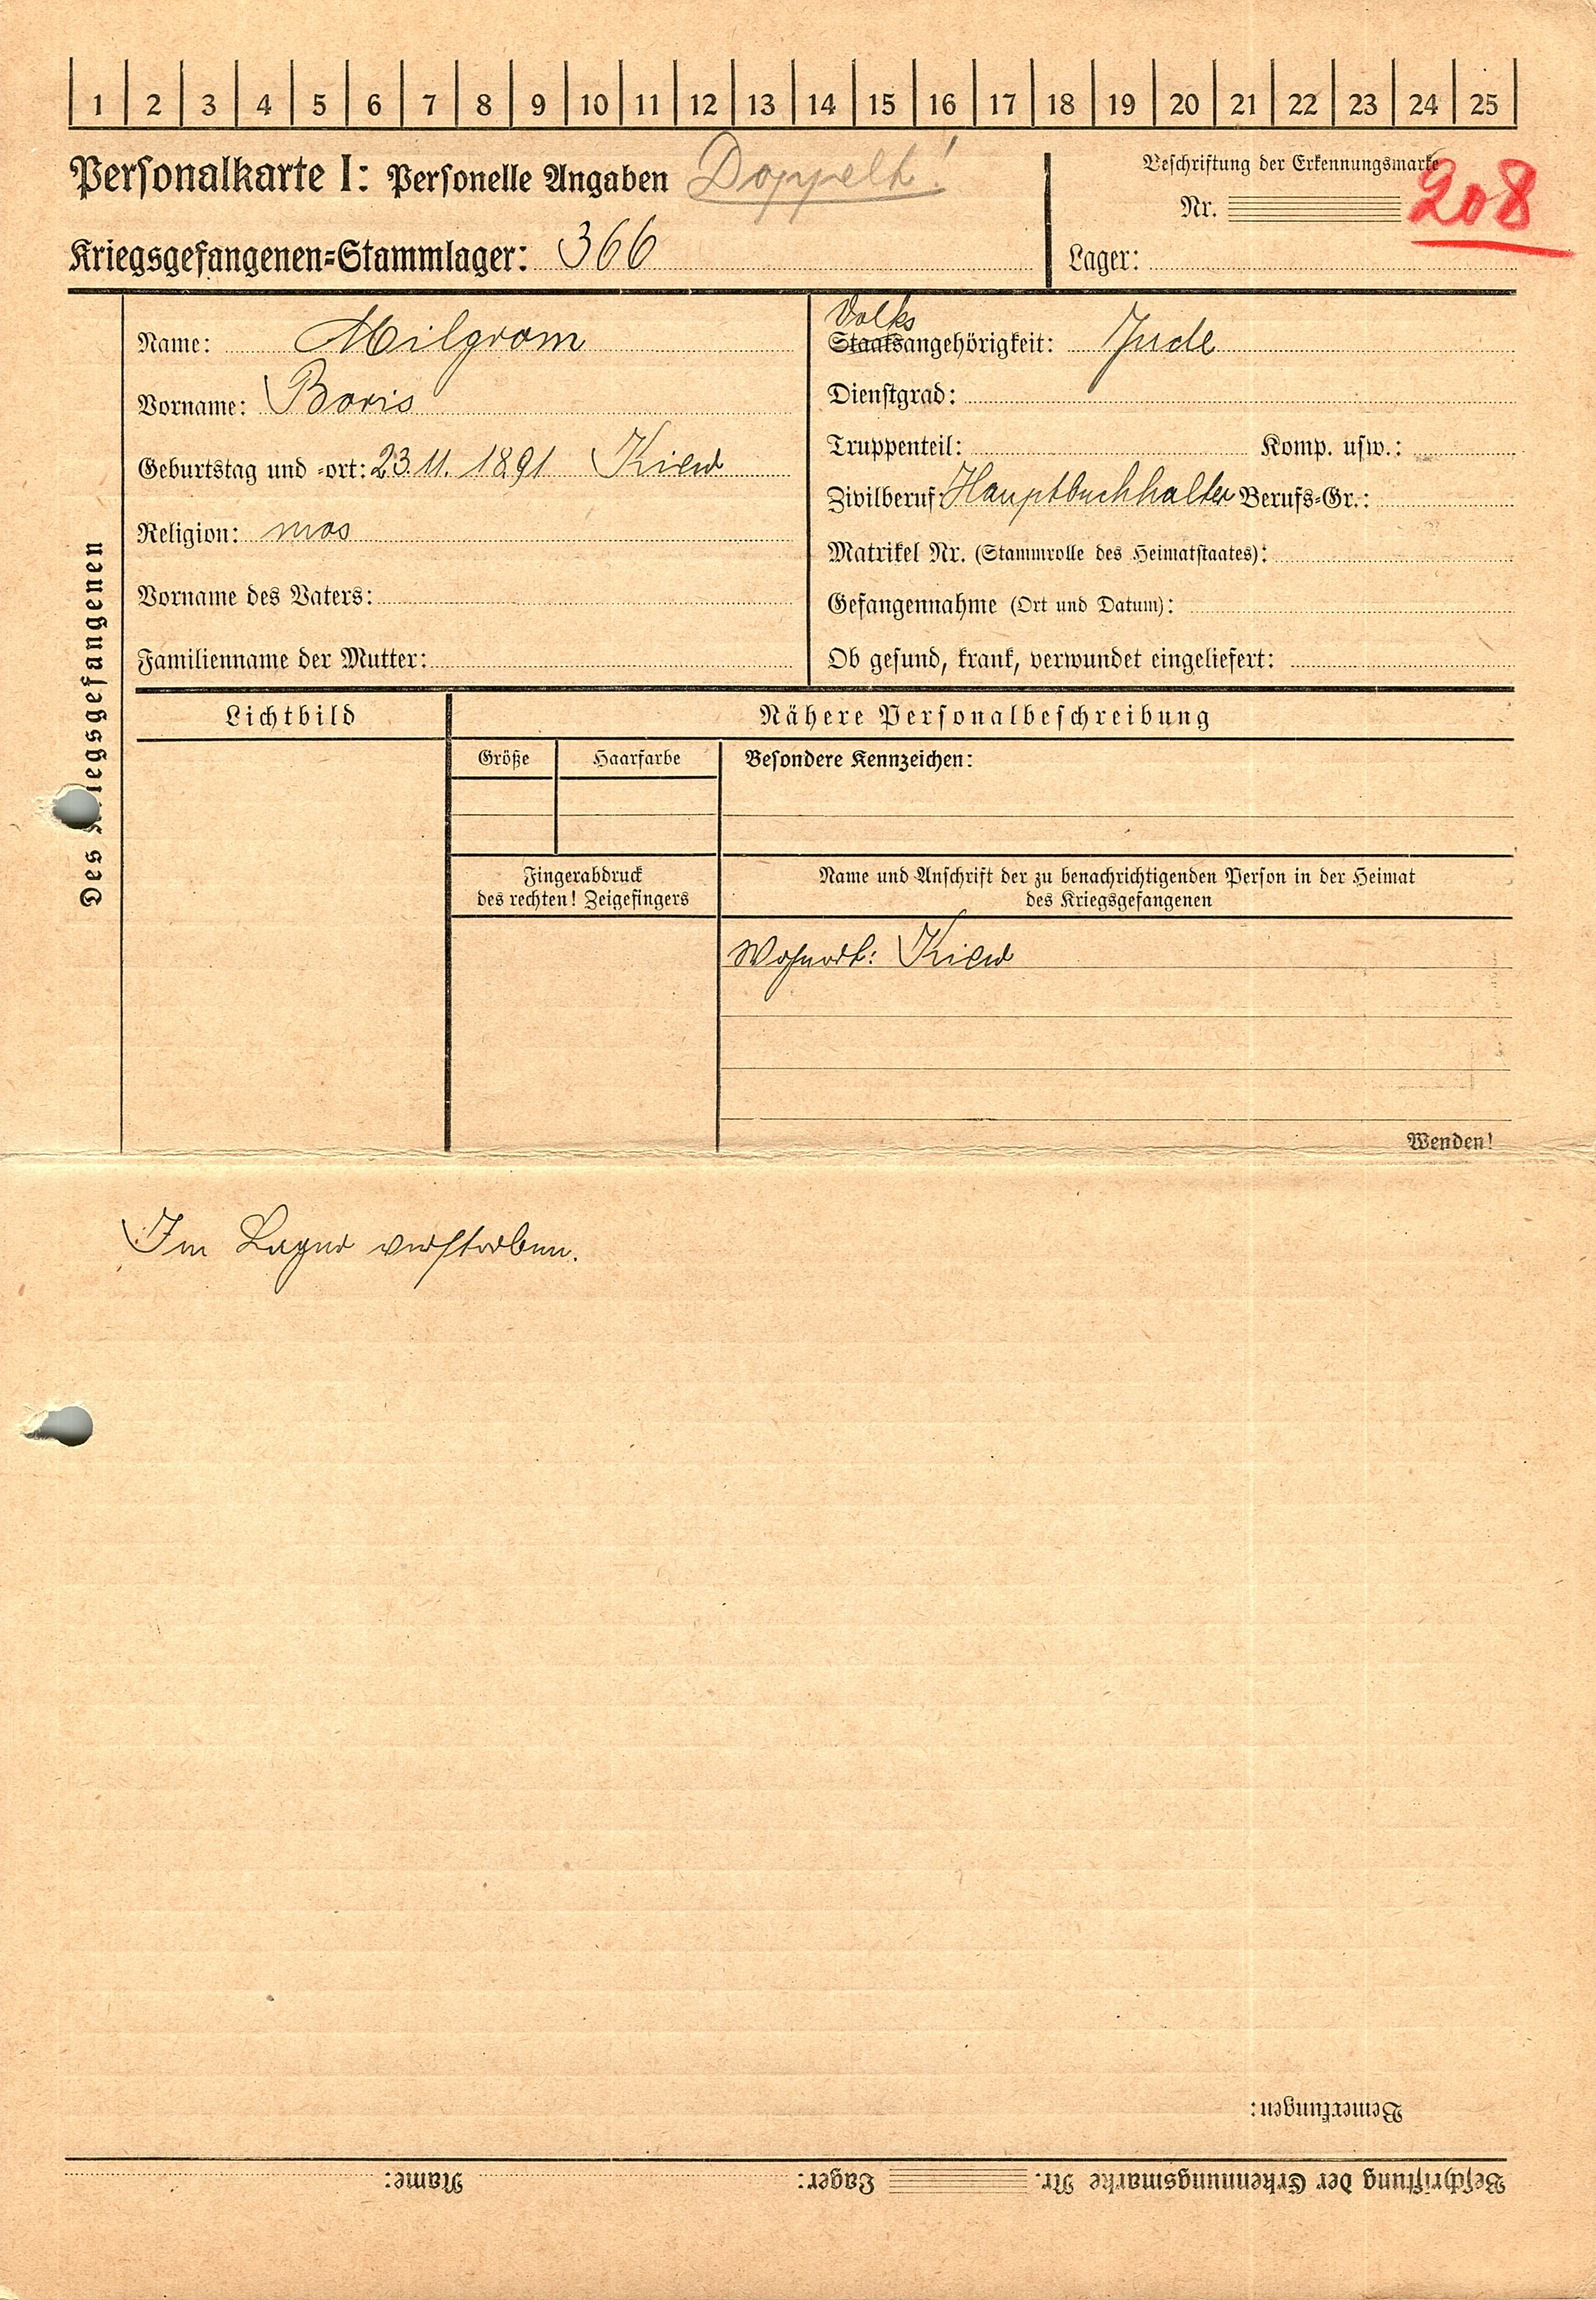 1 2 3 4 5 6 7 8 9 10 11 12 13 14 15 16 17 18 19 20 21 22 23 24 25
Personalkarte I: Personelle Angaben Doppelt!
Beschriftung der Erkennungsmarke
Nr. 208
Kriegsgefangenen=Stammlager: 366
Lager:
Des Kriegsgefangenen
Name: Milgrom
Vorname: Boris
Geburtstag und =ort: 23.11.1891 Kiew
Religion: mos
Vorname des Vaters:
Familienname der Mutter:
Volks
Staatsangehörigkeit: Jude
Dienstgrad:
Truppenteil: Komp. usw.:
Zivilberuf: Hauptbuchhalter Berufs=Gr.:
Matrikel Nr. (Stammrolle des Heimatstaates):
Gefangennahme (Ort und Datum):
Ob gesund, krank, verwundet eingeliefert:
Lichtbild
Nähere Personalbeschreibung
Größe Haarfarbe
Besondere Kennzeichen:
Fingerabdruck
des rechten! Zeigefingers
Name und Anschrift der zu benachrichtigenden Person in der Heimat
des Kriegsgefangenen
Wohnort: Kiew
Wenden!
Im Lager verstorben.
Bemerkungen:
Beschriftung der Erkennungsmarke Nr. Lager: Name: